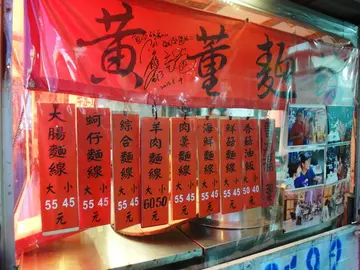 黃董麵
大腸麵線 大 小 55 45 元
蚵仔麵線 大 小 55 45 元
綜合麵線 大 小 55 45 元
羊肉麵線 大 小 60 50 元
肉羹麵線 大 小 55 45 元
海鮮麵線 大 小 55 45 元
鮮菇麵線 大 小 55 45 元
香菇油飯 大 小 50 40 元